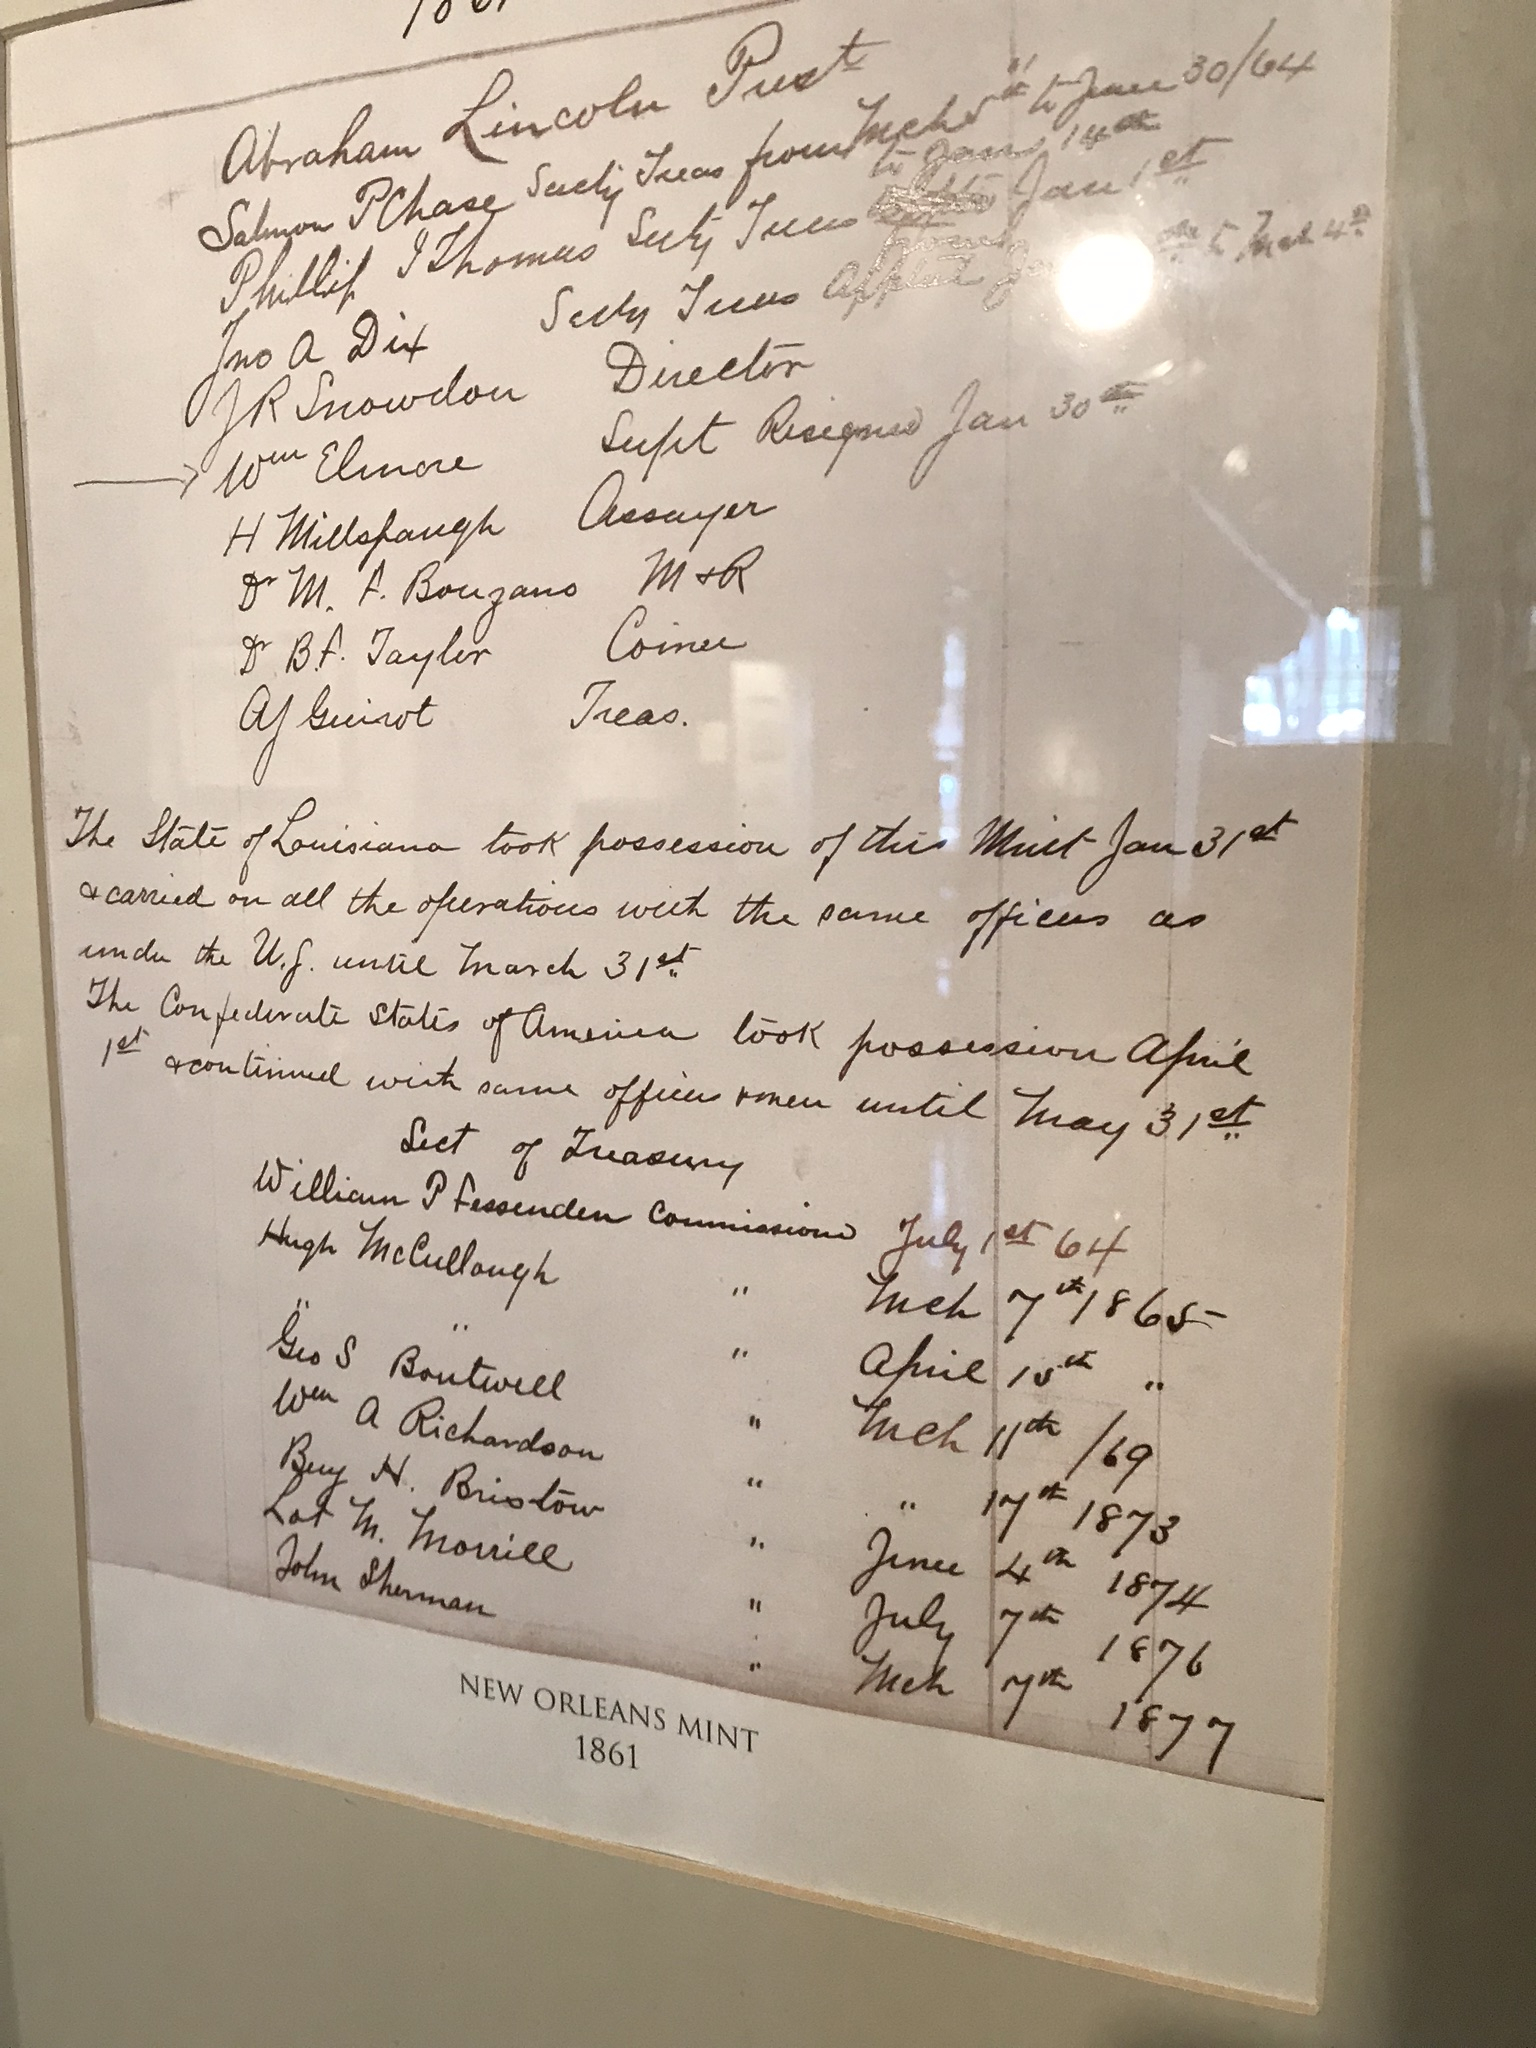 Abraham Lincoln Prest
Salmon P Chase Secty Treas from Mch 5th to June 30/64
to Jan 14th
Phillip F Thomas Secty Treas Jan 1st
Jno A Dix Secty Treas to Mch 4th
J R Snowdon Director
Wm Elmore Supt Resigned Jan 30th
H Millspaugh Assayer
Dr M. F. Bonzano M & R
Dr B. F. Taylor Coiner
A J Guirot Treas.
The State of Louisiana took possession of this Mint Jan 31st
& carried on all the operations with the same officers as
under the U.S. until March 31st
The Confederate States of America took possession April
1st & continued with same officers & men until May 31st
Sect of Treasury
William P Fessenden Commissiond July 1st 64
Hugh McCullough " Mch 7th 1865
" " " April 15th "
Geo S Boutwell " Mch 11th /69
Wm A Richardson " " 17th 1873
Benj H. Bristow " June 4th 1874
Lot M. Morrill " July 7th 1876
John Sherman " Mch 7th 1877
NEW ORLEANS MINT
1861